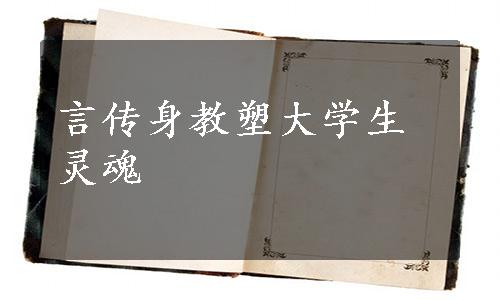 言传身教塑大学生
灵魂